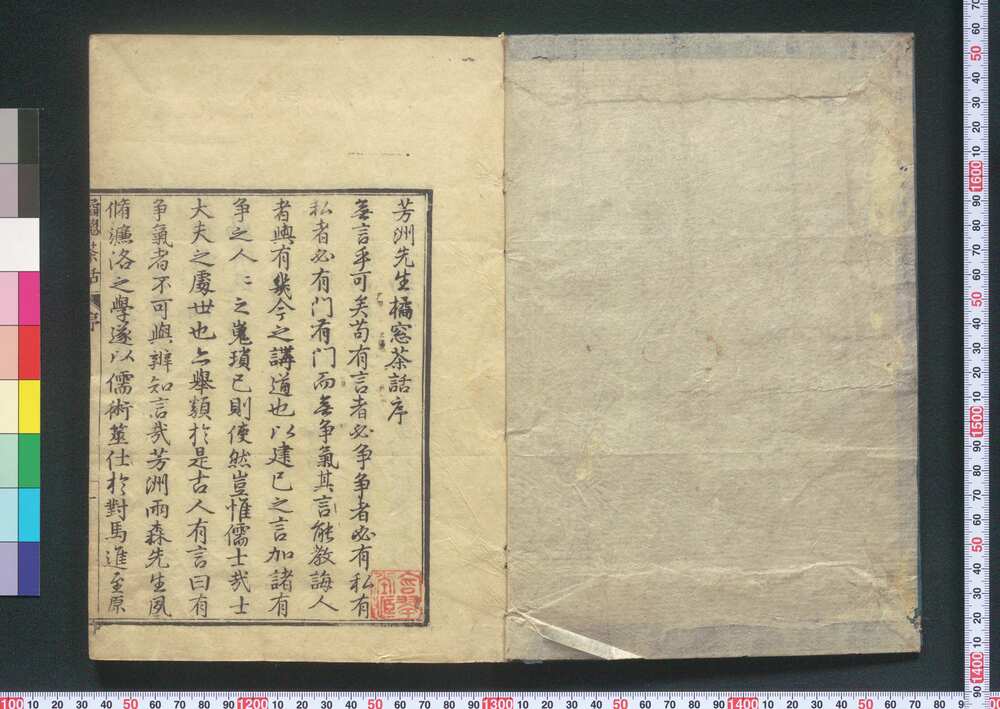 芳洲先生橘窓茶話序
無言乎可矣苟有言者必争争者必有私有
私者必有門有門而無争氣其言能教誨人
者與有幾今之講道也以建己之言加諸有
争之人〻之嵬瑣己則使然豈惟儒士哉士
大夫之處世也亦舉類於是古人有言曰有
争氣者不可與辨知言哉芳洲雨森先生夙
脩濂洛之學遂以儒術筮仕於對馬進至原
橘窓茶話 序